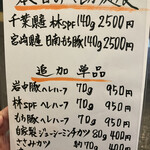 千葉県産 林SPF 140g 2500円
宮崎県産 日南もち豚 140g 2500円
追加単品
岩中豚ヘレハーフ 70g 950円
林SPFヘレハーフ 70g 950円
もち豚ヘレハーフ 70g 950円
自家製ジューシーミンチカツ 80g 400円
ささみカツ 約70g 400円